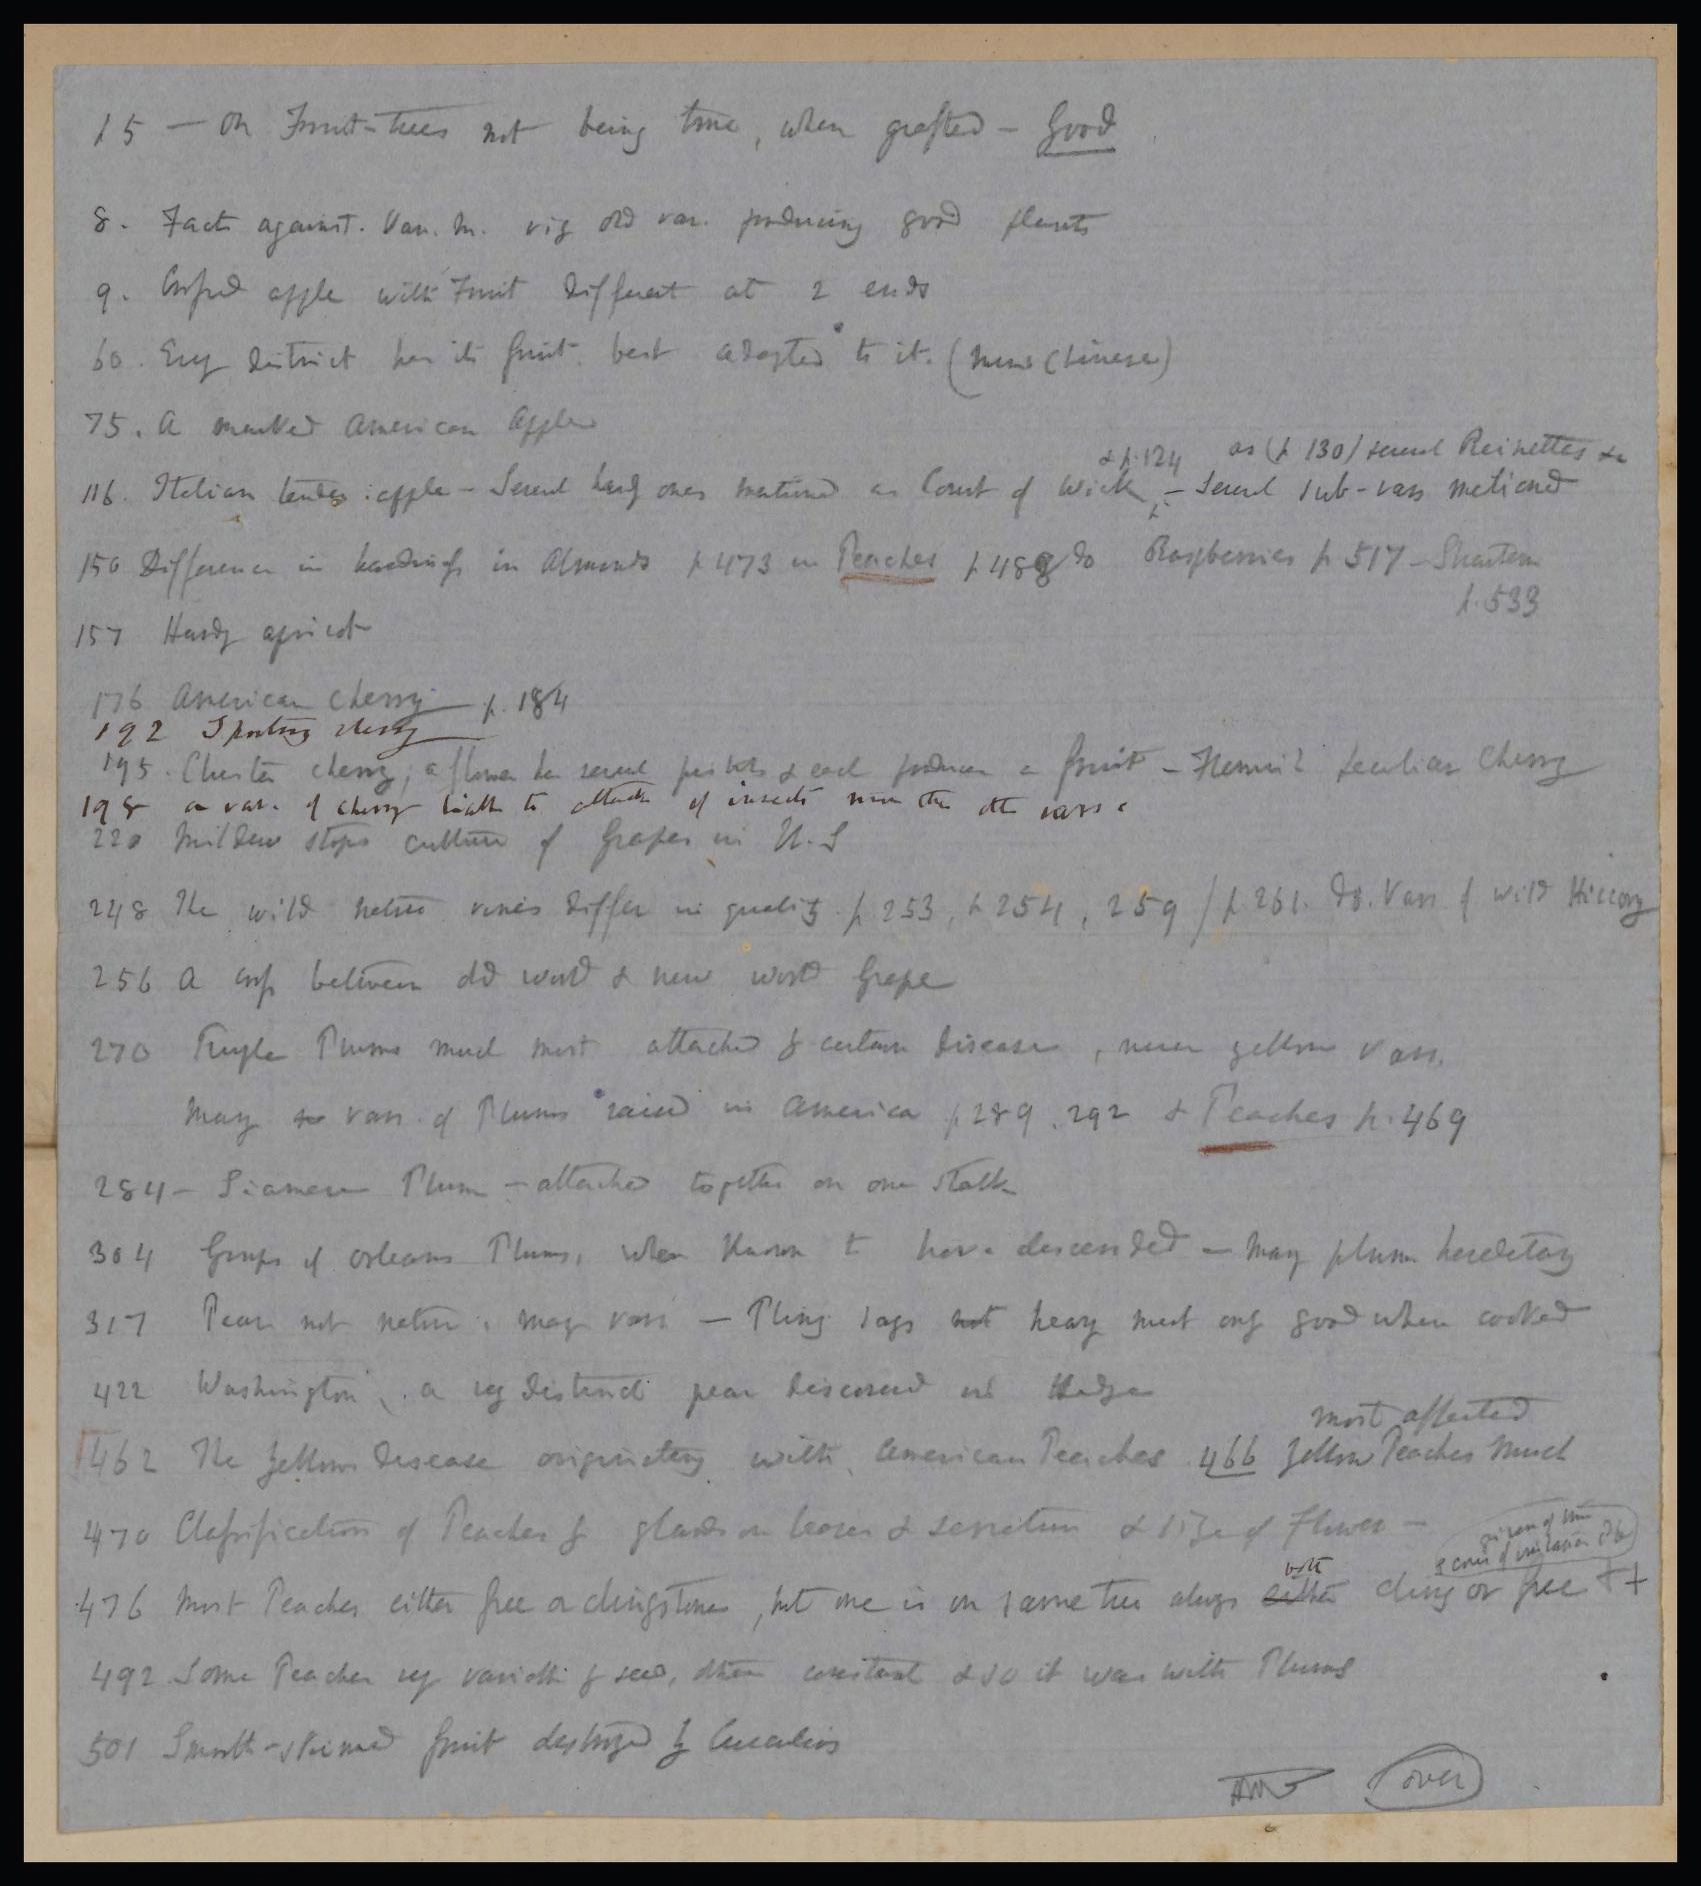 p 5 — On Fruit-trees not being true, when grafted — Good
8. Facts against. Van. M. viz old var. producing good plants
9. Crossed apple with Fruit different at 2 ends
60. Every district has its fruit best adapted to it. (New Chinese)
75. A marked American Apple
& p. 124 as (p 130) several Reinettes &c
116. Italian tender apple — Several hardy ones mentioned as Court of Wick, — Several sub-vars metioned
150 Difference in hardiness in Almonds p 473 in Peaches p 488 do Raspberries p 517 —
p. 533
157 Hardy apricot
176 American Cherry — p. 184
192 Sporting cherry
195. Cluster cherry; a flower has several pistils & each produces a fruit — peculiar Cherry
198 a var. of cherry liable to attacks of insects more than oth vars.
220 Mildew stops culture of Grapes in U.S
248 The wild native vines differ in quality. p. 253, p 254, 259 / p. 261. do. Vars of wild Hiccory
256 A cross between old world & new world Grape
270 Purple Plums much most attacked by certain disease, never yellow vars.
Many vars. of Plums raised in America p 289. 292 & Peaches p. 469
284 — Siamese Plum — attached together on one stalk
304 Groups of Orleans Plums, when known to have descended — Many plum hereditary
317 Pear not native, many vars — Pliny says not heavy meat only good when cooked
422 Washington, a very distinct pear discovered in Hedge
most affected
462 The yellow disease originating with American Peaches 466 Yellow Peaches Much
470 Classification of Peaches by glands on leaves & serration & size of Flower —
given of this
case of variation
both
476 Most Peaches either free or clingstones, but one is on same tree always either cling or free ++
492 Some Peaches very variable by seed, others constant & so it was with Plums
501 Smooth-skinned fruit destroyed by Curculios
(over)